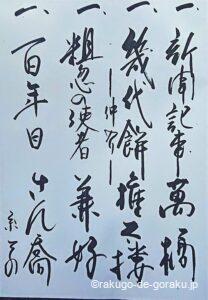 一、新聞記事 萬橘
一、幾代餅 權太楼
―仲入―
一、粗忽の使者 兼好
一、百年目 さん喬
©rakugo-de-goraku.jp